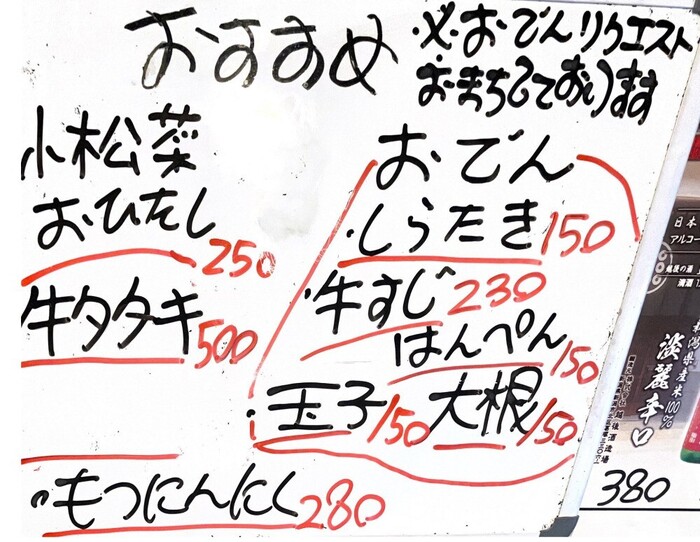 おすすめ
※おでんリクエスト
おまちしております
小松菜
おひたし
250
牛タタキ
500
おでん
・しらたき150
・牛すじ230
はんぺん
150
玉子150 大根150
もつにんにく280
日本
アルコー
越後の酒
清酒
潟県産米100%
淡麗辛口
380